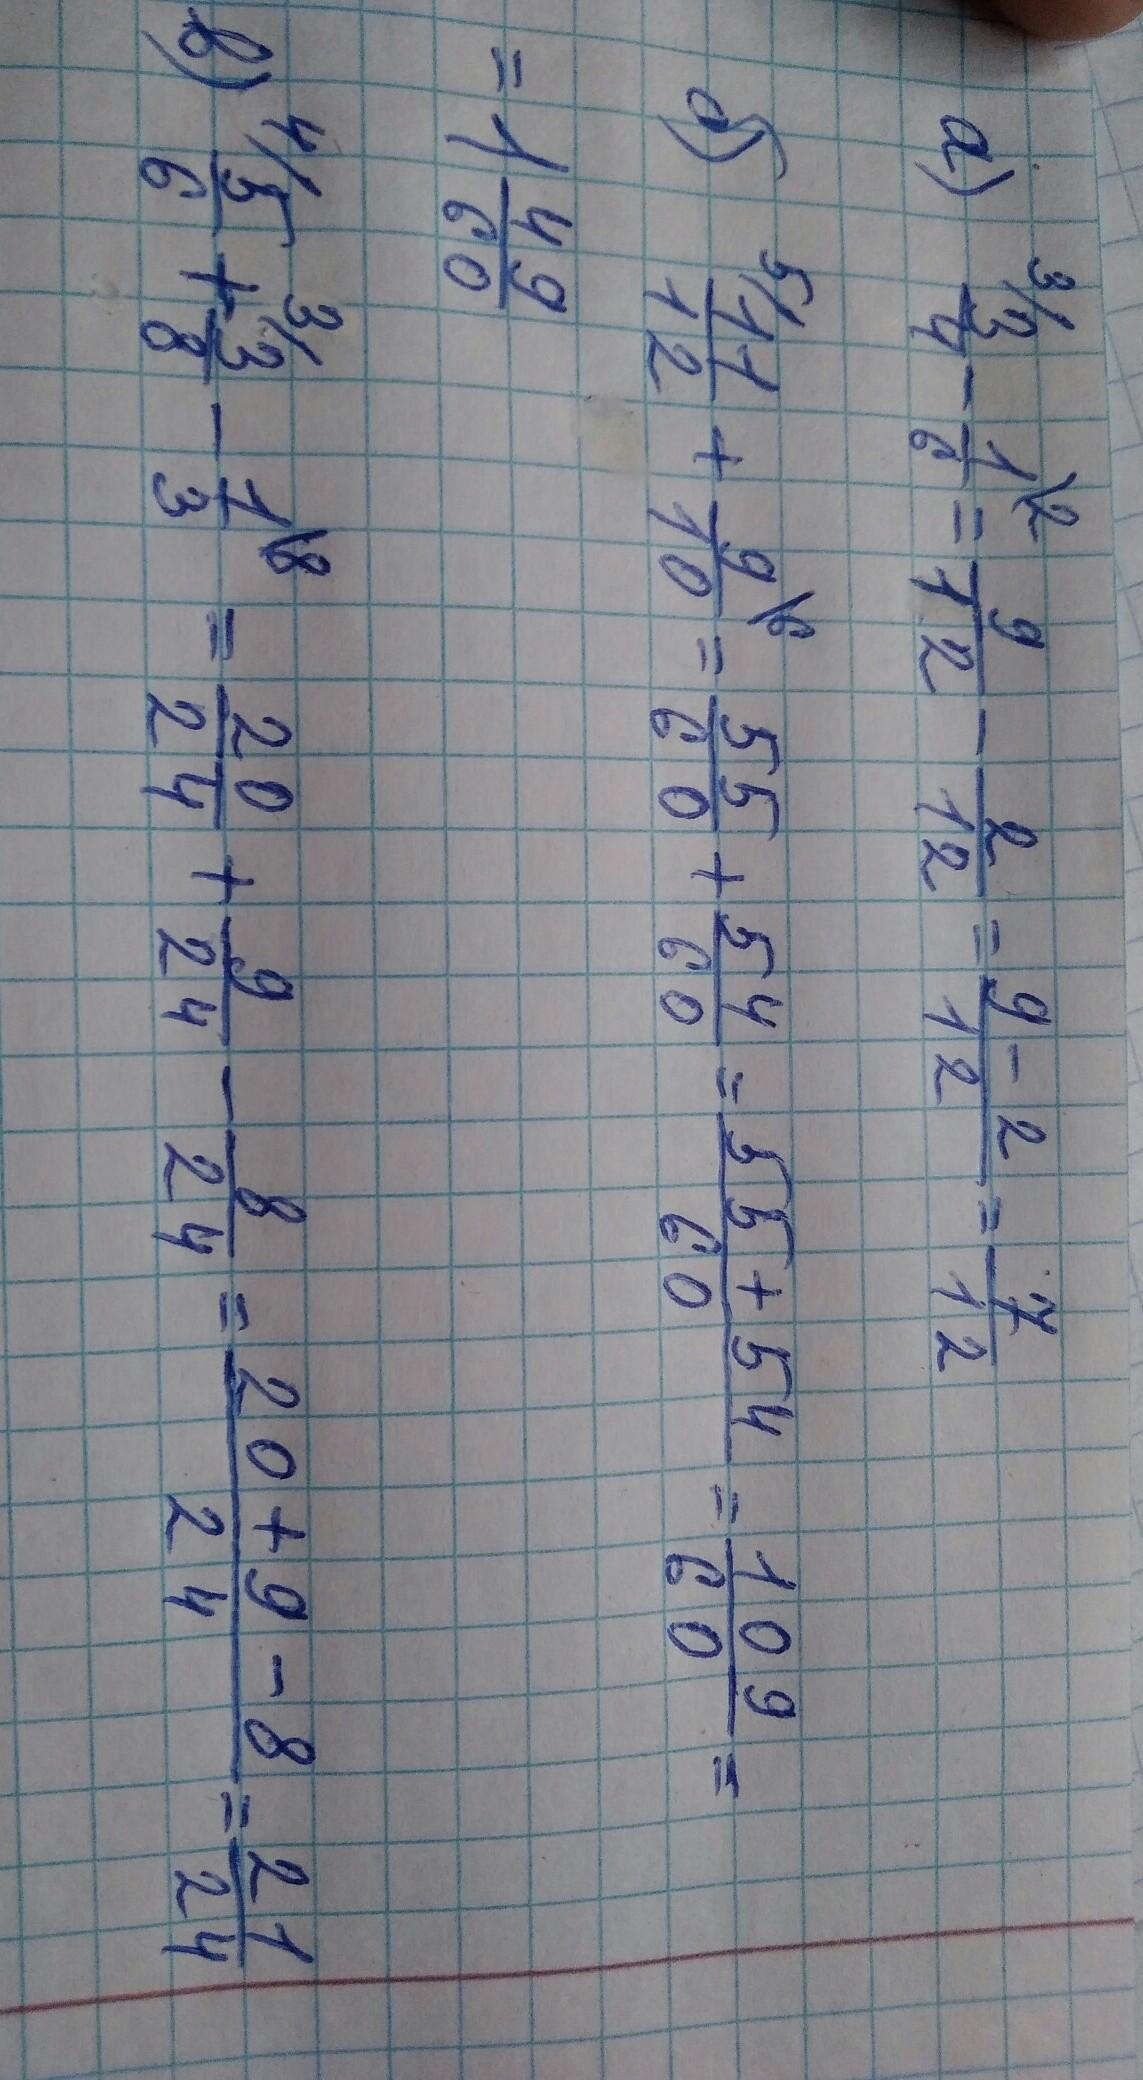 а) ³⁄ 3/4 - 1/6 \² = 9/12 - 2/12 = 9-2/12 = 7/12
б) ⁵⁄ 11/12 + 9/10 \⁶ = 55/60 + 54/60 = 55+54/60 = 109/60 =
= 1 49/60
в) ⁴⁄ 5/6 + ³⁄ 3/8 - 1/3 \⁸ = 20/24 + 9/24 - 8/24 = 20+9-8/24 = 21/24